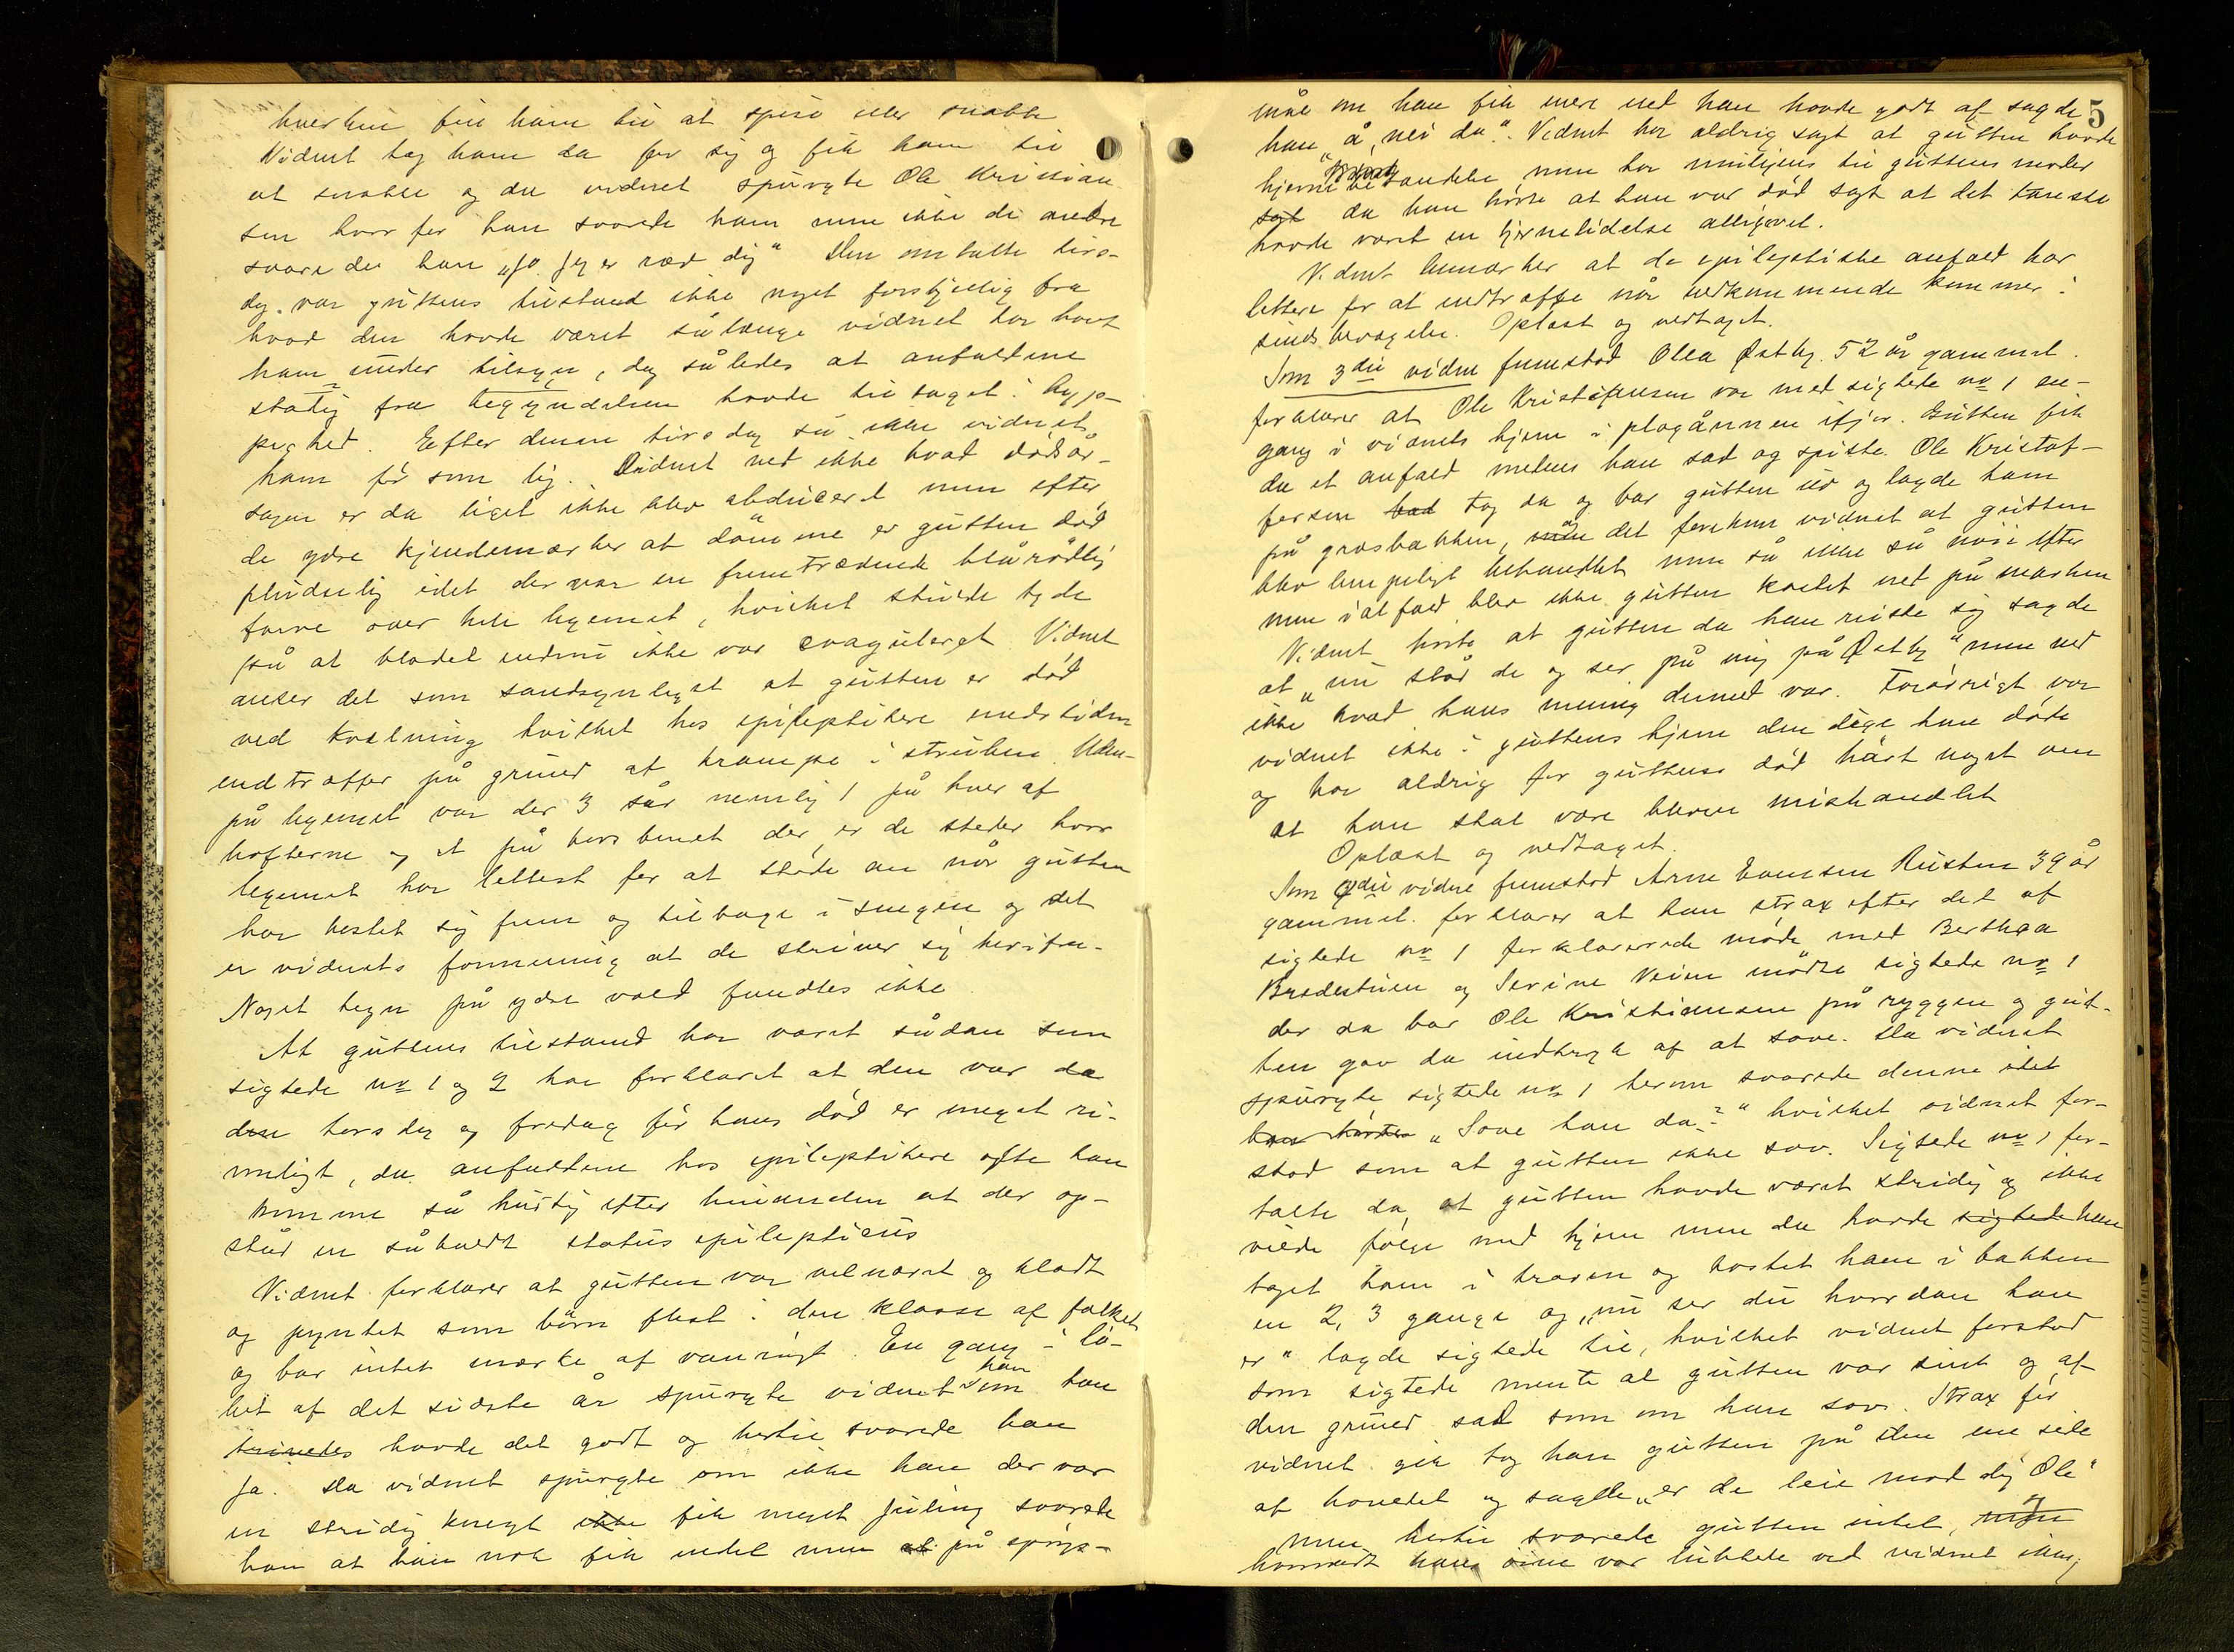 hverken fik ham til at spise eller snakke
Vidnet tog ham da for sig og fik ham til
at snakke og da vidnet spurgte Ole Kristian
sen hvorfor han svarede ham men ikke de andre
svarede han "Jo jeg er ræd dig" Den omtalte tirs-
dag var guttens tilstand ikke noget forskjellig fra
hvad den havde været sålænge vidnet har havt
ham under tilsyn, dog således at anfaldene
stadig fra begyndelsen havde tiltaget i hyp-
pighed. Efter denne tirsdag så ikke vidnet
ham før som lig. Vidnet ved ikke hvad dødsår-
sagen er da liget ikke blev obduceret men efter
de ydre kjendemærker at dömme er gutten død
pludselig idet der var en fremtrædende blårødlig
farve over hele legemet, hvilket skulde tyde
på at blodet endnu ikke var coaguleret Vidnet
anser det som sandsynligst at gutten er død
ved kvælning hvilket hos epileptikere undertiden
indtræffer på grund af krampe i struben. Uden-
på legemet var der 3 sår nemlig 1 på hver af
hofterne og et på korsbenet der er de steder hvor
legemet har lettest for at støde an når gutten
har kastet sig frem og tilbage i sengen og det
er vidnets formening at de skriver sig herifra.
Noget tegn på ydre vold fandtes ikke.
At guttens tilstand har været sådan som
sigtede no 1 og 2 har forklaret at den var da
den torsdag og fredag før hans død er meget ri-
meligt, da anfaldene hos epileptikere ofte kan
komme så hurtig efter hinanden at der op-
står en såkaldt status epilepticus
Vidnet forklarer at gutten var velnæret og klædt
og pyntet som börn flest i den klasse af folket
og bar intet mærke af vanrøgt. En gang i lö-
bet af det sidste år spurgte vidnet ham om han
trivedes havde det godt og hertil svarede han
Ja. Da vidnet spurgte om ikke han der var
en stridig knegt ikke fik meget juling svarede
han at han nok fik endel men at på spørgs-
5
mål om han fik mere end han havde godt af sagde
han "å, nei da". Vidnet har aldrig sagt at gutten havde
hjernebetændelse men har muligens til guttens moder
sagt da han hørte at han var død sagt at det kanske
havde været en hjernelidelse alligevel.
Vidnet bemærker at de epileptiske anfald har
lettere for at indtræffe når vedkommende kommer i
sindsbevægelse. Oplæst og vedtaget.
Som 3die vidne fremstod Olea Østby. 52 år gammel.
forklarer at Ole Kristiansen var med sigtede no 1 en-
gang i vidnets hjem i plogånnen ifjor. Gutten fik
da et anfald medens han sad og spiste. Ole Kristof-
fersen bad tog da og bar gutten ud og lagde ham
på græsbakken, det forekom vidnet at gutten
blev lempeligt behandlet men så ikke så nøie efter
men ialfald blev ikke gutten kastet ned på marken
Vidnet hørte at gutten da han reiste sig sagde
at "nu står de og ser på mig på Østby" men ved
ikke hvad hans mening dermed var. Forøvrigt var
vidnet ikke i guttens hjem den dage han døde
og har aldrig før guttens død hørt noget om
at han skal være bleven mishandlet
Oplæst og vedtaget.
Som 4die vidne fremstod Arne Evensen Rusten 39 år
gammel. forklarer at han strax efter det af
sigtede no 1 forklarede møde med Berthea
Brodestuen og Severine Veien mødte sigtede no 1
der da bar Ole Kristiansen på ryggen og gut-
ten gav da indtryk af at sove. Da vidnet
spurgte sigtede no 1 herom svarede denne idet
han hørtes "Sove han da?" hvilket vidnet for-
stod som at gutten ikke sov. Sigtede no 1 for-
talte da at gutten havde været stridig og ikke
vilde følge med hjem men da havde sigtede han
taget ham i kraven og kastet ham i bakken
en 2, 3 gange og "nu ser du hvordan han
er" lagde sigtede til, hvilket vidnet forstod
som sigtede mente at gutten var sint og af
den grund sad som om han sov. Strax før
vidnet gik tog han gutten på den ene side
af hovedet og sagde "er de leie mod dig Ole"
men hertil svarede gutten intet, men og
hvorvidt hans øine var lukkede ved vidnet ikke,